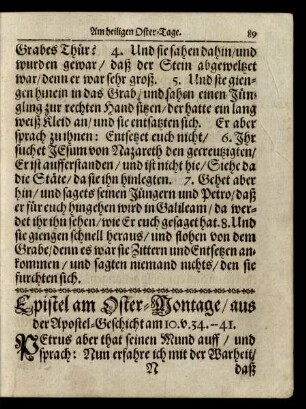 Am heiligen Oster-Tage. 89
Grabes Thür? 4. Und sie sahen dahin/und
wurden gewar/ daß der Stein abgeweltzet
war/denn er war sehr groß. 5. Und sie gien-
gen hinein in das Grab/und sahen einen Jün-
gling zur rechten Hand sitzen/der hatte ein lang
weiß Kleid an/und sie entsatzten sich. Er aber
sprach zu ihnen: Entsetzet euch nicht/ 6. Ihr
suchet JEsum von Nazareth den gecreutzigten/
Er ist aufferstanden/und ist nicht hie/Siehe da
die Stäte/da sie ihn hinlegten. 7. Gehet aber
hin/und sagets seinen Jüngern und Petro/daß
er für euch hingehen wird in Galileam/ da wer-
det ihr ihn sehen/wie Er euch gesaget hat. 8. Und
sie giengen schnell heraus/ und flohen von dem
Grabe/denn es war sie Zittern und Entsetzen an-
kommen/ und sagten niemand nichts/ den sie
furchten sich.
Epistel am Oster-Montage/aus
der Apostel-Geschicht am 10. v. 34.-41.
PEtrus aber that seinen Mund auff/ und
sprach: Nun erfahre ich mit der Warheit/
N daß